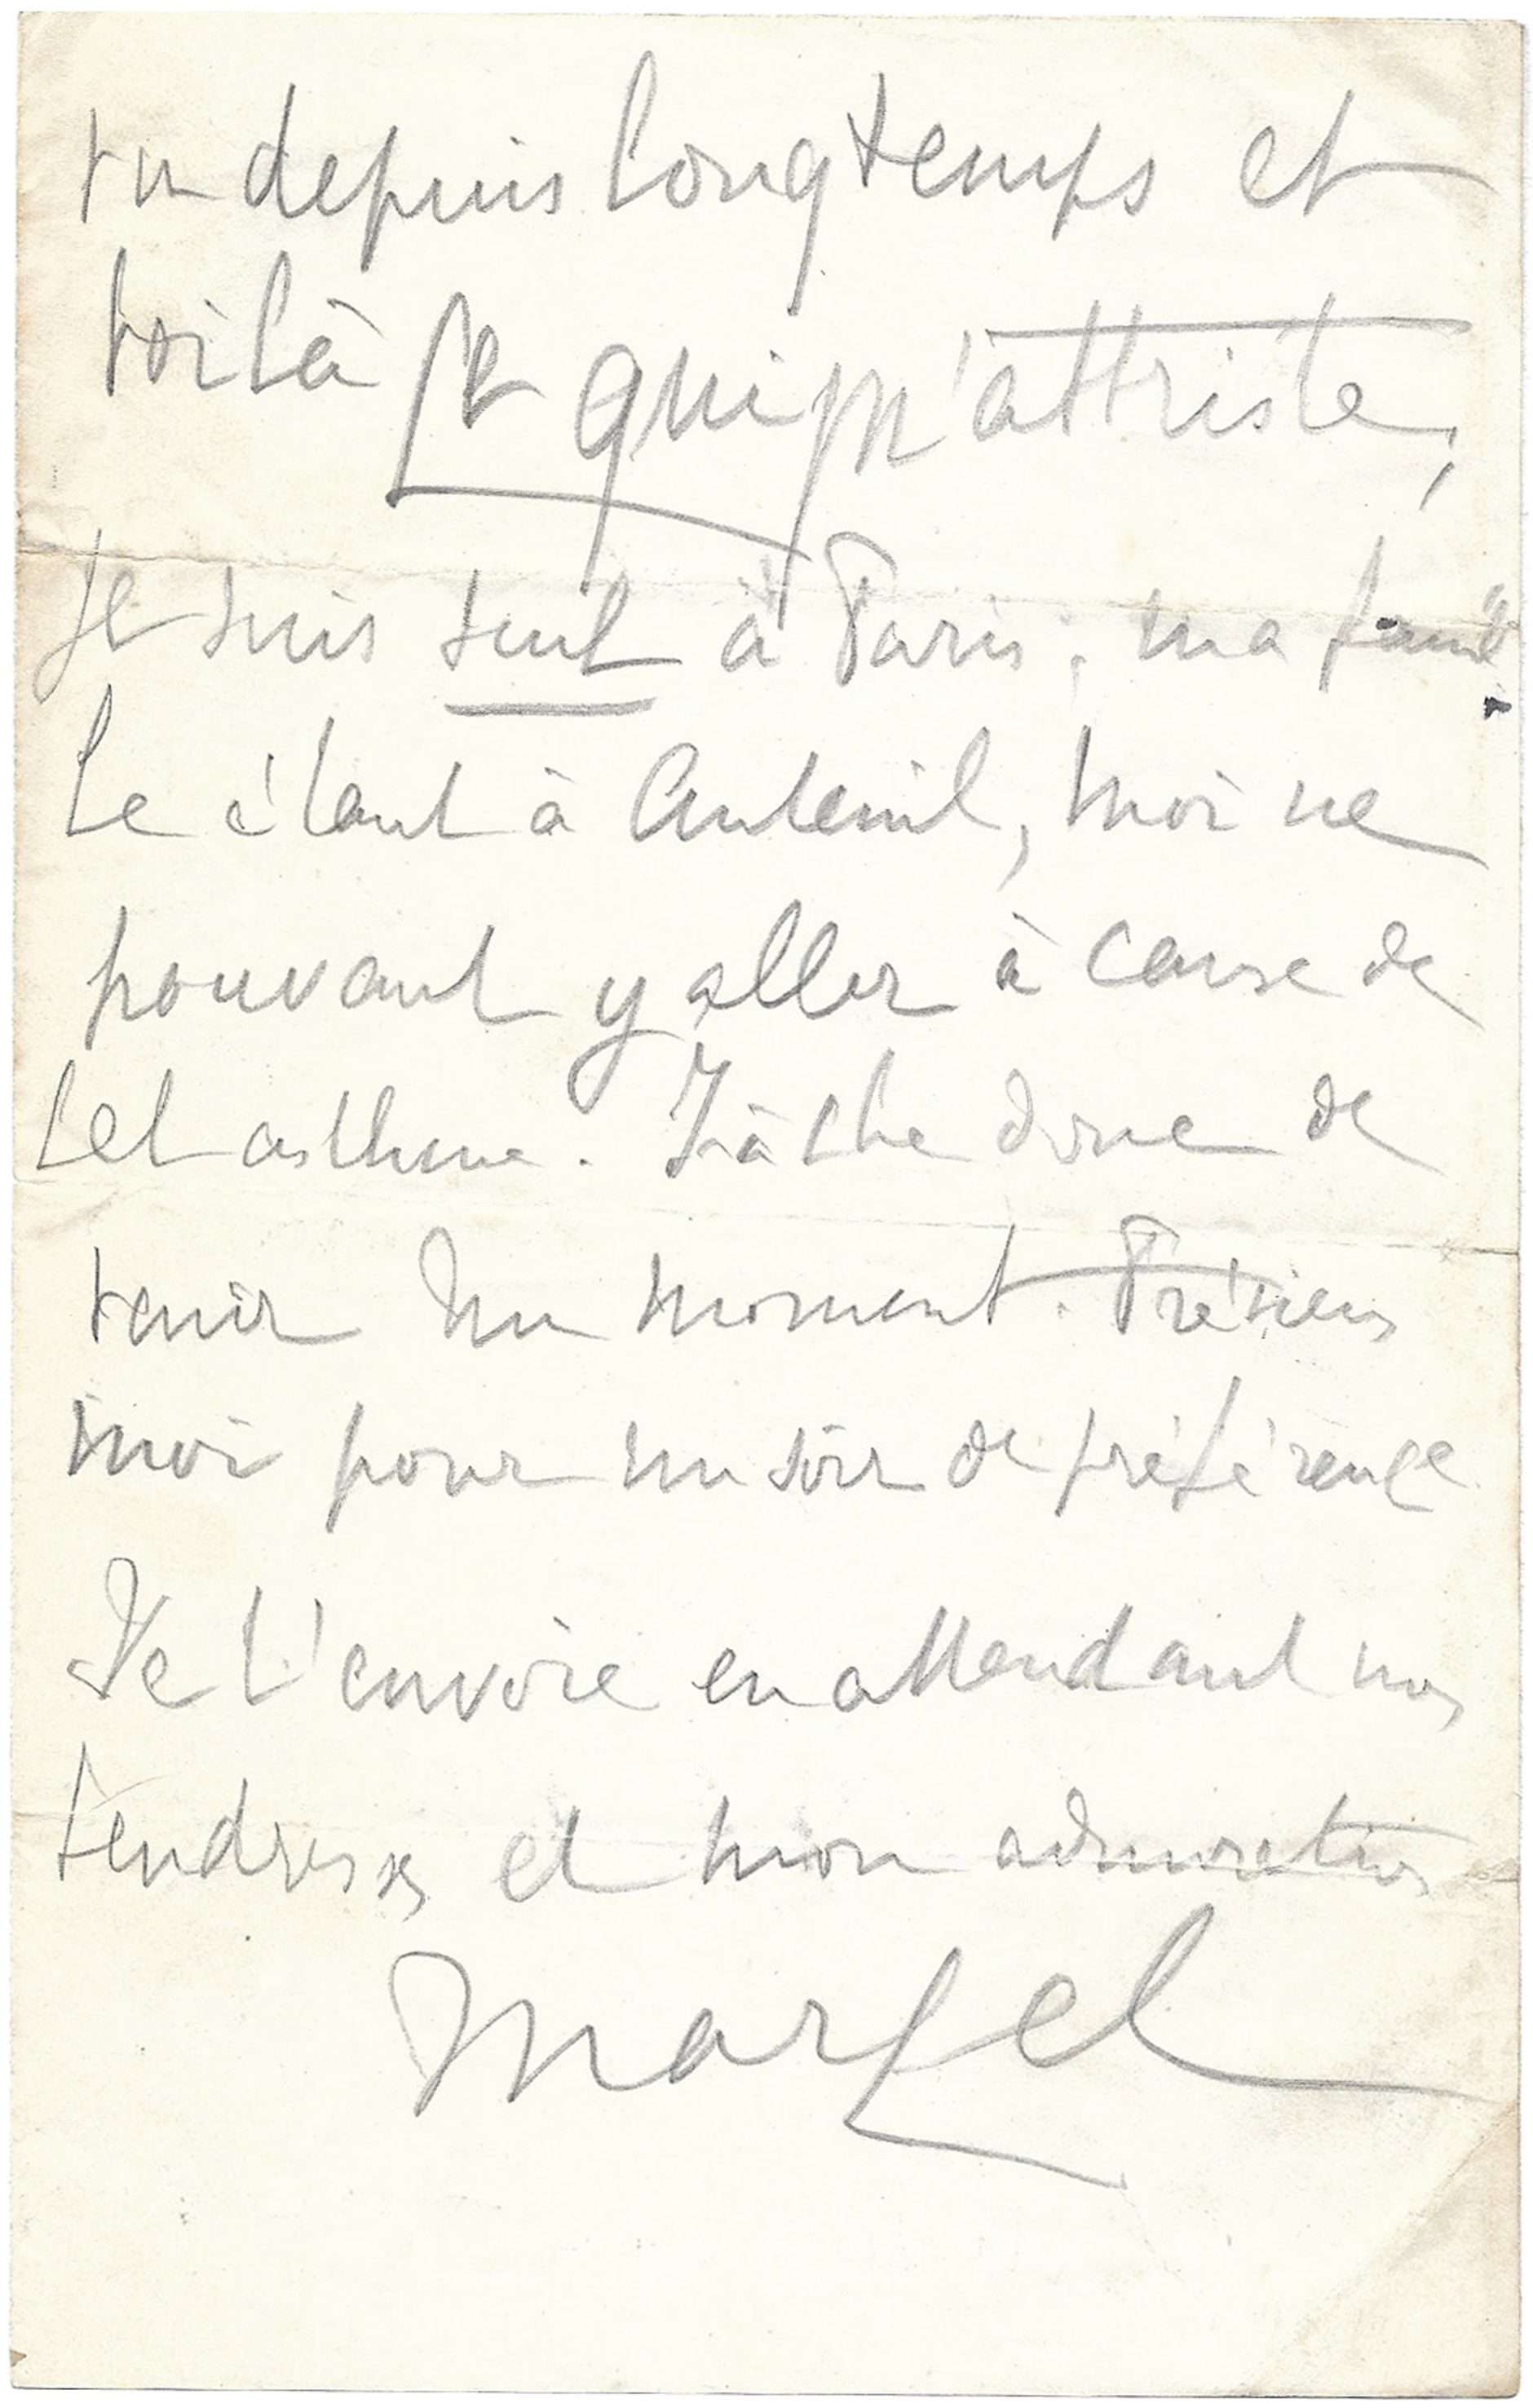 vu depuis longtemps et
voilà ce qui m'attriste,
Je suis seul à Paris, ma famil
le étant à Auteuil, moi ne
pouvant y aller à cause de
cet asthme. Tâche donc de
venir un moment. Préviens
moi pour un soir de préférence
Je t'envoie en attendant mes
tendresses et mon admiration
Marcel